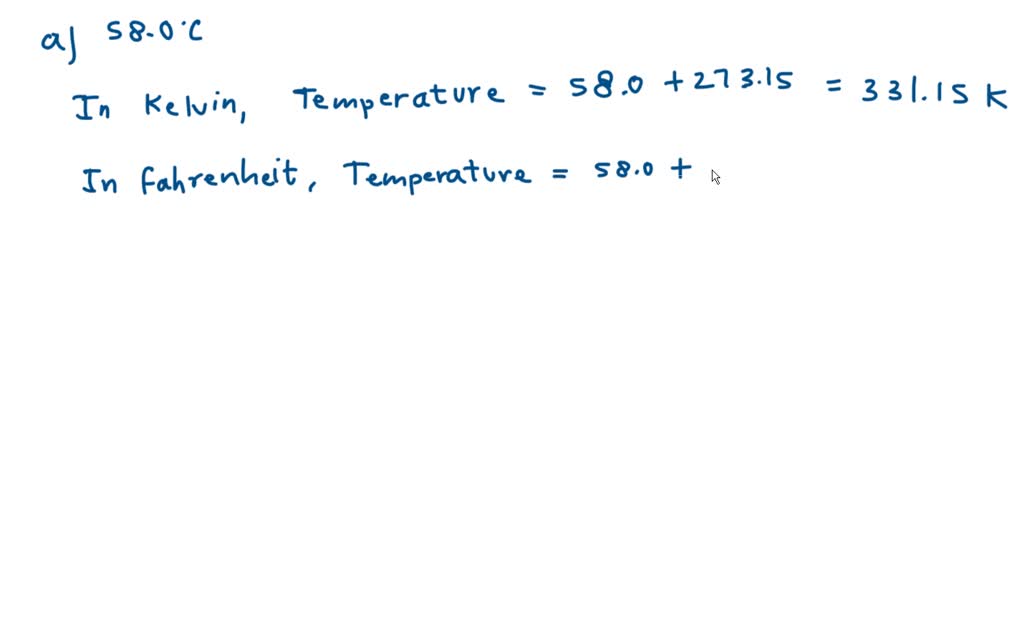 a) 58.0°C
In Kelvin, Temperature = 58.0 + 273.15 = 331.15 K
In fahrenheit, Temperature = 58.0 +